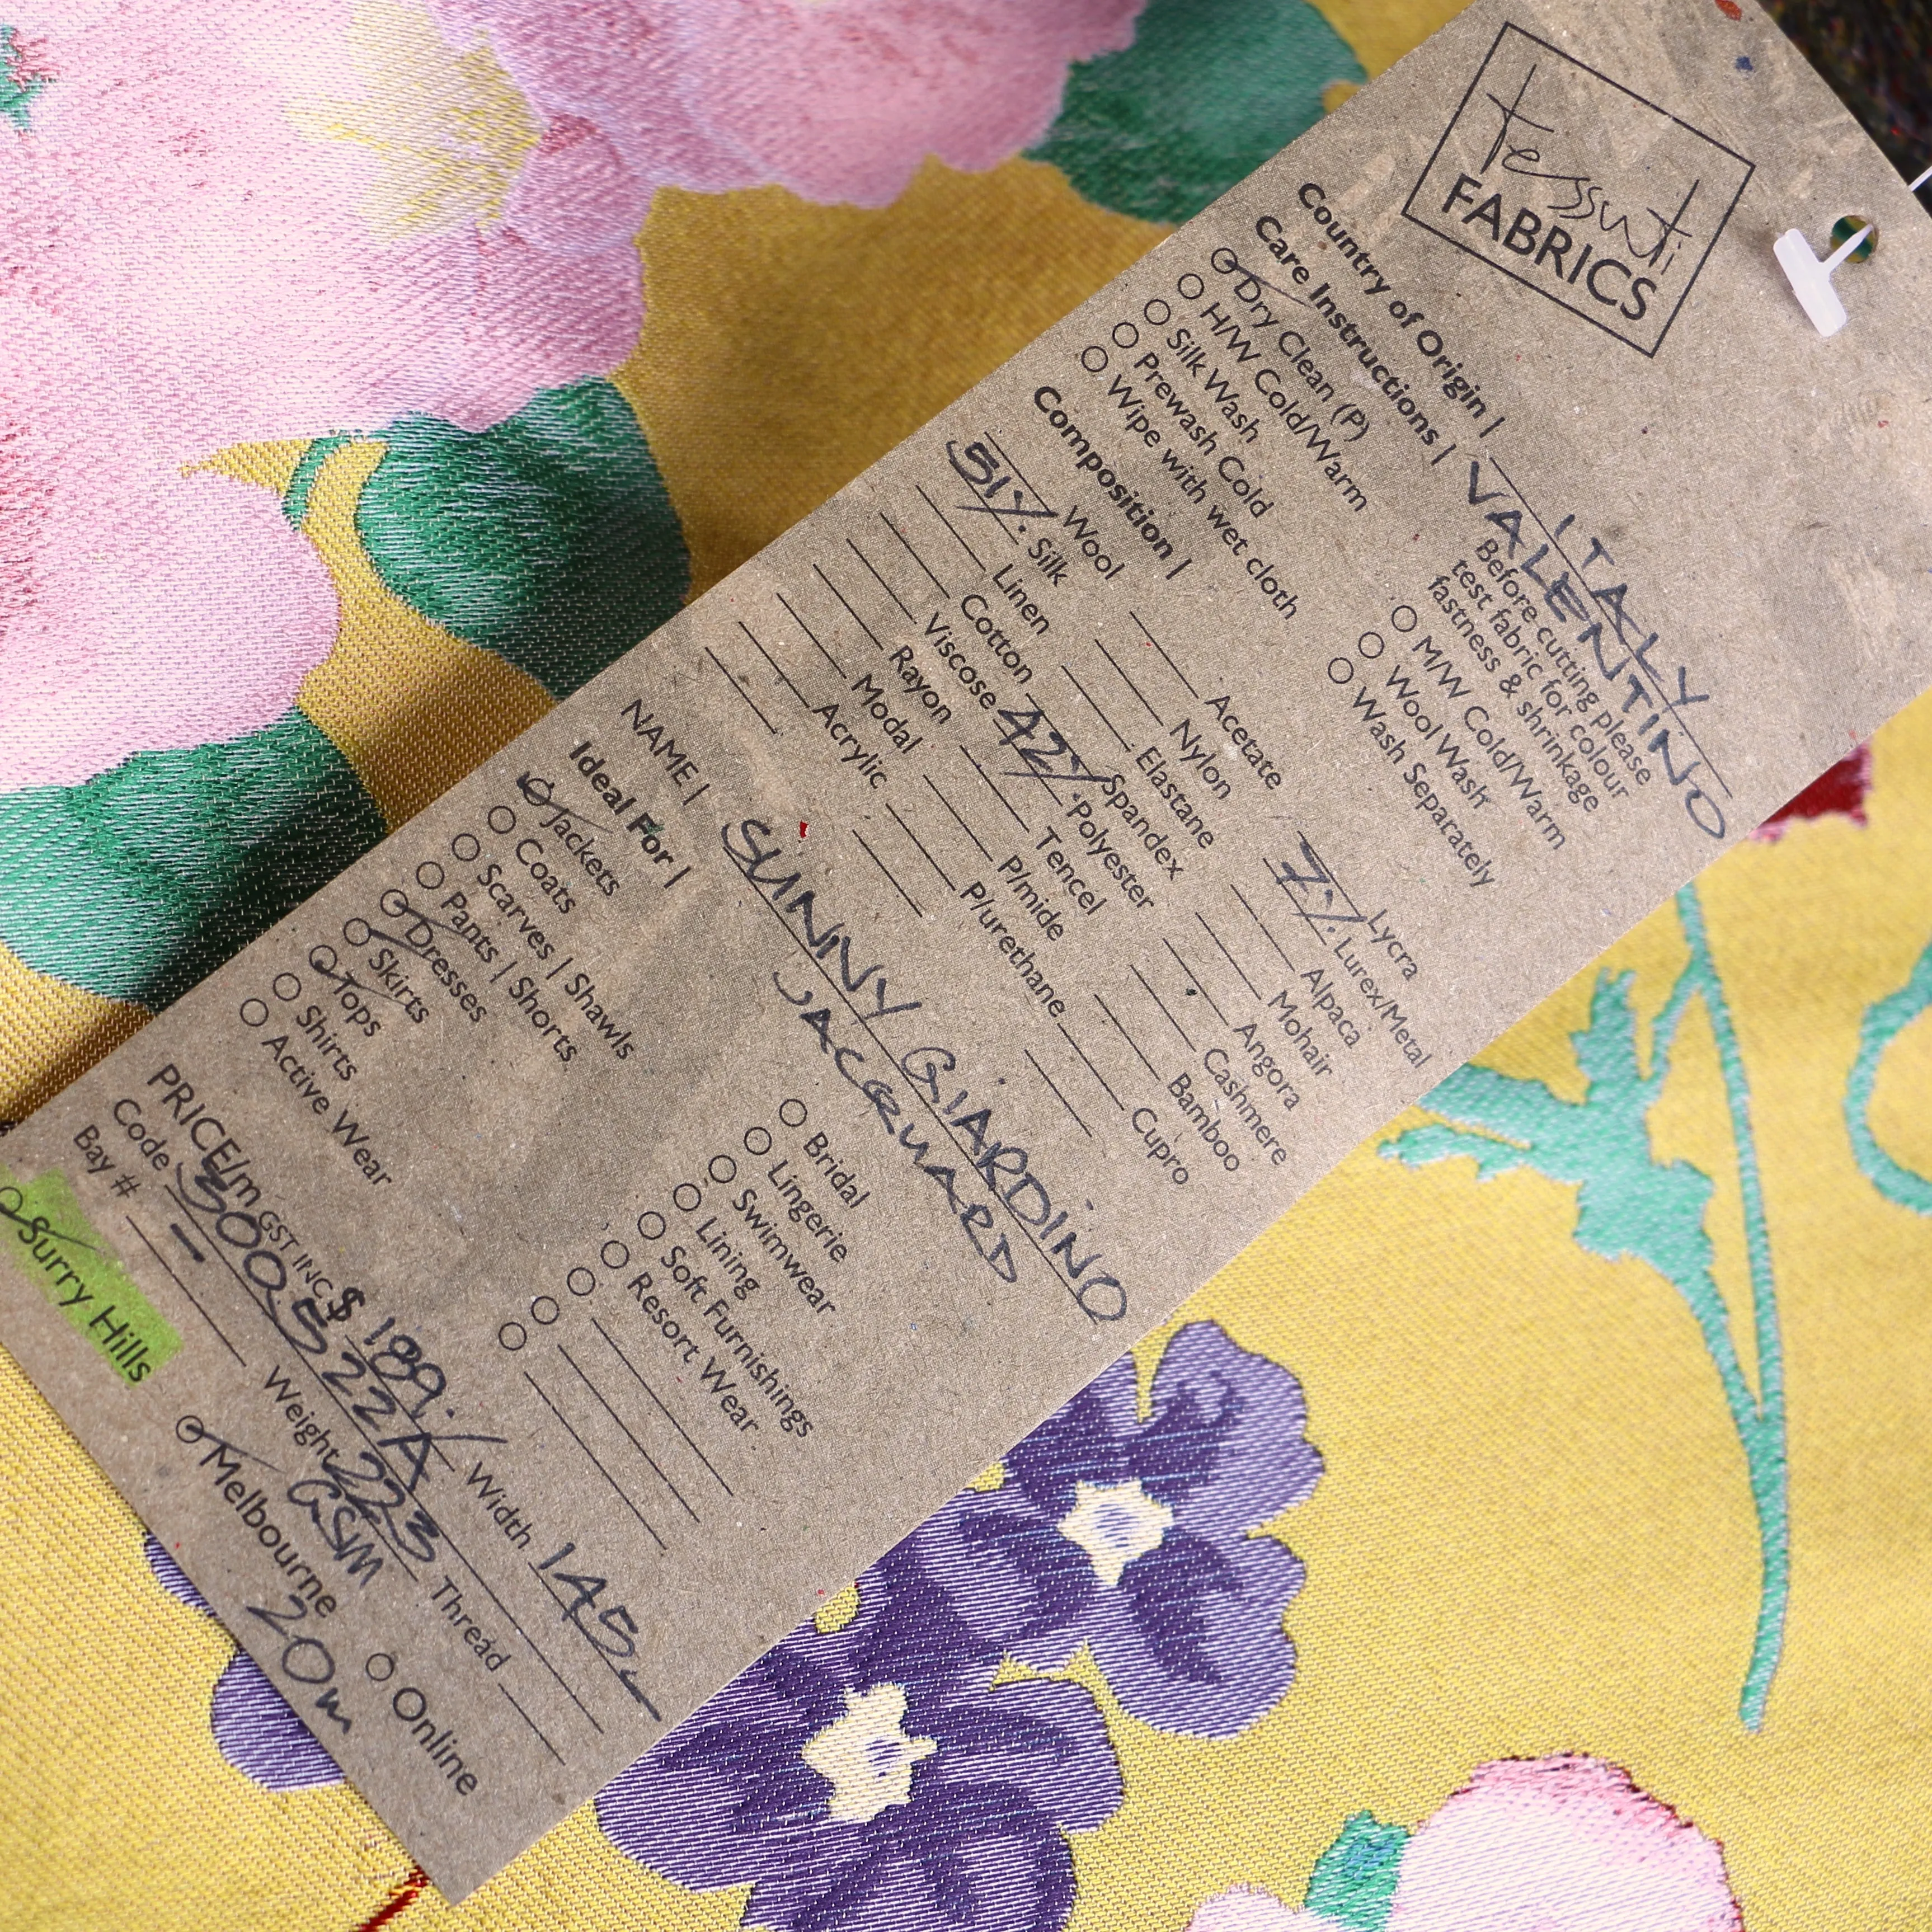 tessuti
FABRICS
Country of Origin | ITALY
Care Instructions | VALENTINO
Dry Clean (P)
H/W Cold/Warm
Silk Wash
Prewash Cold
Wipe with wet cloth
Before cutting please
test fabric for colour
fastness & shrinkage
M/W Cold/Warm
Wool Wash
Wash Separately
Composition |
Wool
51% Silk
Linen
Cotton
Viscose
Rayon
Modal
Acrylic
Acetate
Nylon
Elastane
Spandex
42% Polyester
Tencel
P/mide
P/urethane
Lycra
7% Lurex/Metal
Alpaca
Mohair
Angora
Cashmere
Bamboo
Cupro
NAME | SUNNY GIARDINO
JACQUARD
Ideal For |
Jackets
Coats
Scarves | Shawls
Pants | Shorts
Dresses
Skirts
Tops
Shirts
Active Wear
Bridal
Lingerie
Swimwear
Lining
Soft Furnishings
Resort Wear
PRICE/m GST INC $ 189./ Width 145
Code 300522A Thread
Bay # - Weight 223
GSM
Surry Hills Melbourne Online
20m